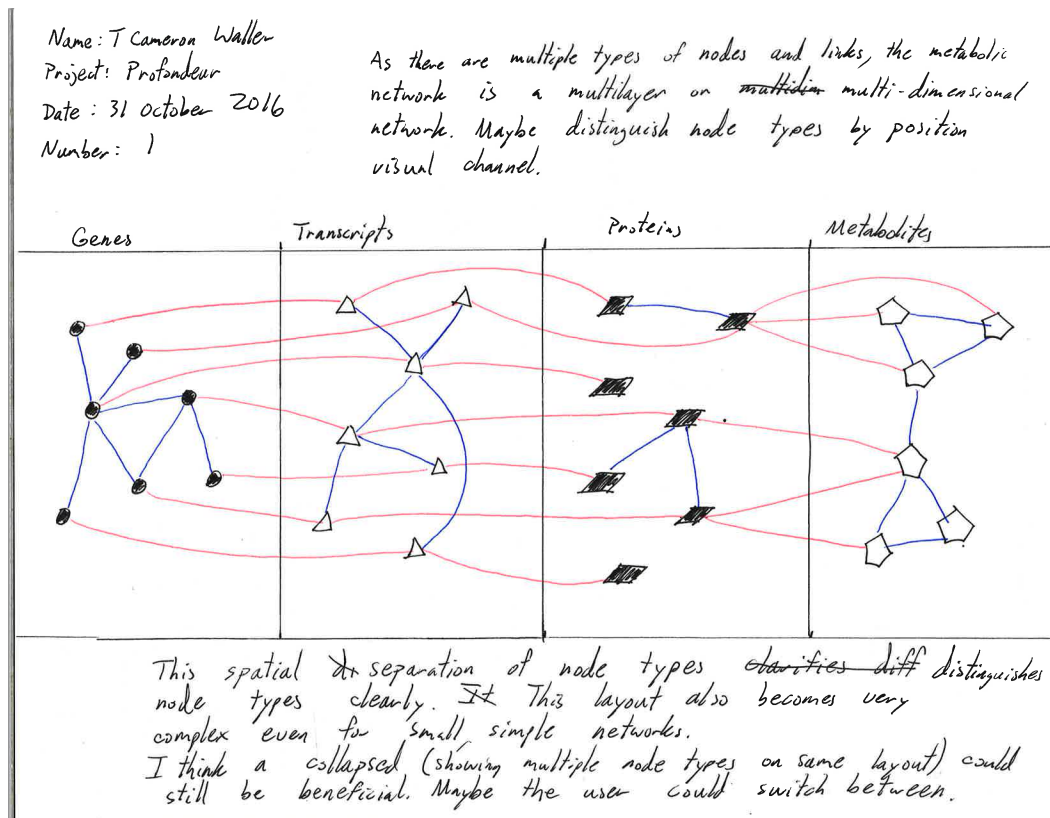 Name: T Cameron Waller
Project: Profondeur
Date: 31 October 2016
Number: 1
As there are multiple types of nodes and links, the metabolic
network is a multilayer or multidim multi-dimensional
network. Maybe distinguish node types by position
visual channel.
Genes
Transcripts
Proteins
Metabolites
This spatial separation of node types clarifies diff distinguishes
node types clearly. It This layout also becomes very
complex even for small, simple networks.
I think a collapsed (showing multiple node types on same layout) could
still be beneficial. Maybe the user could switch between.